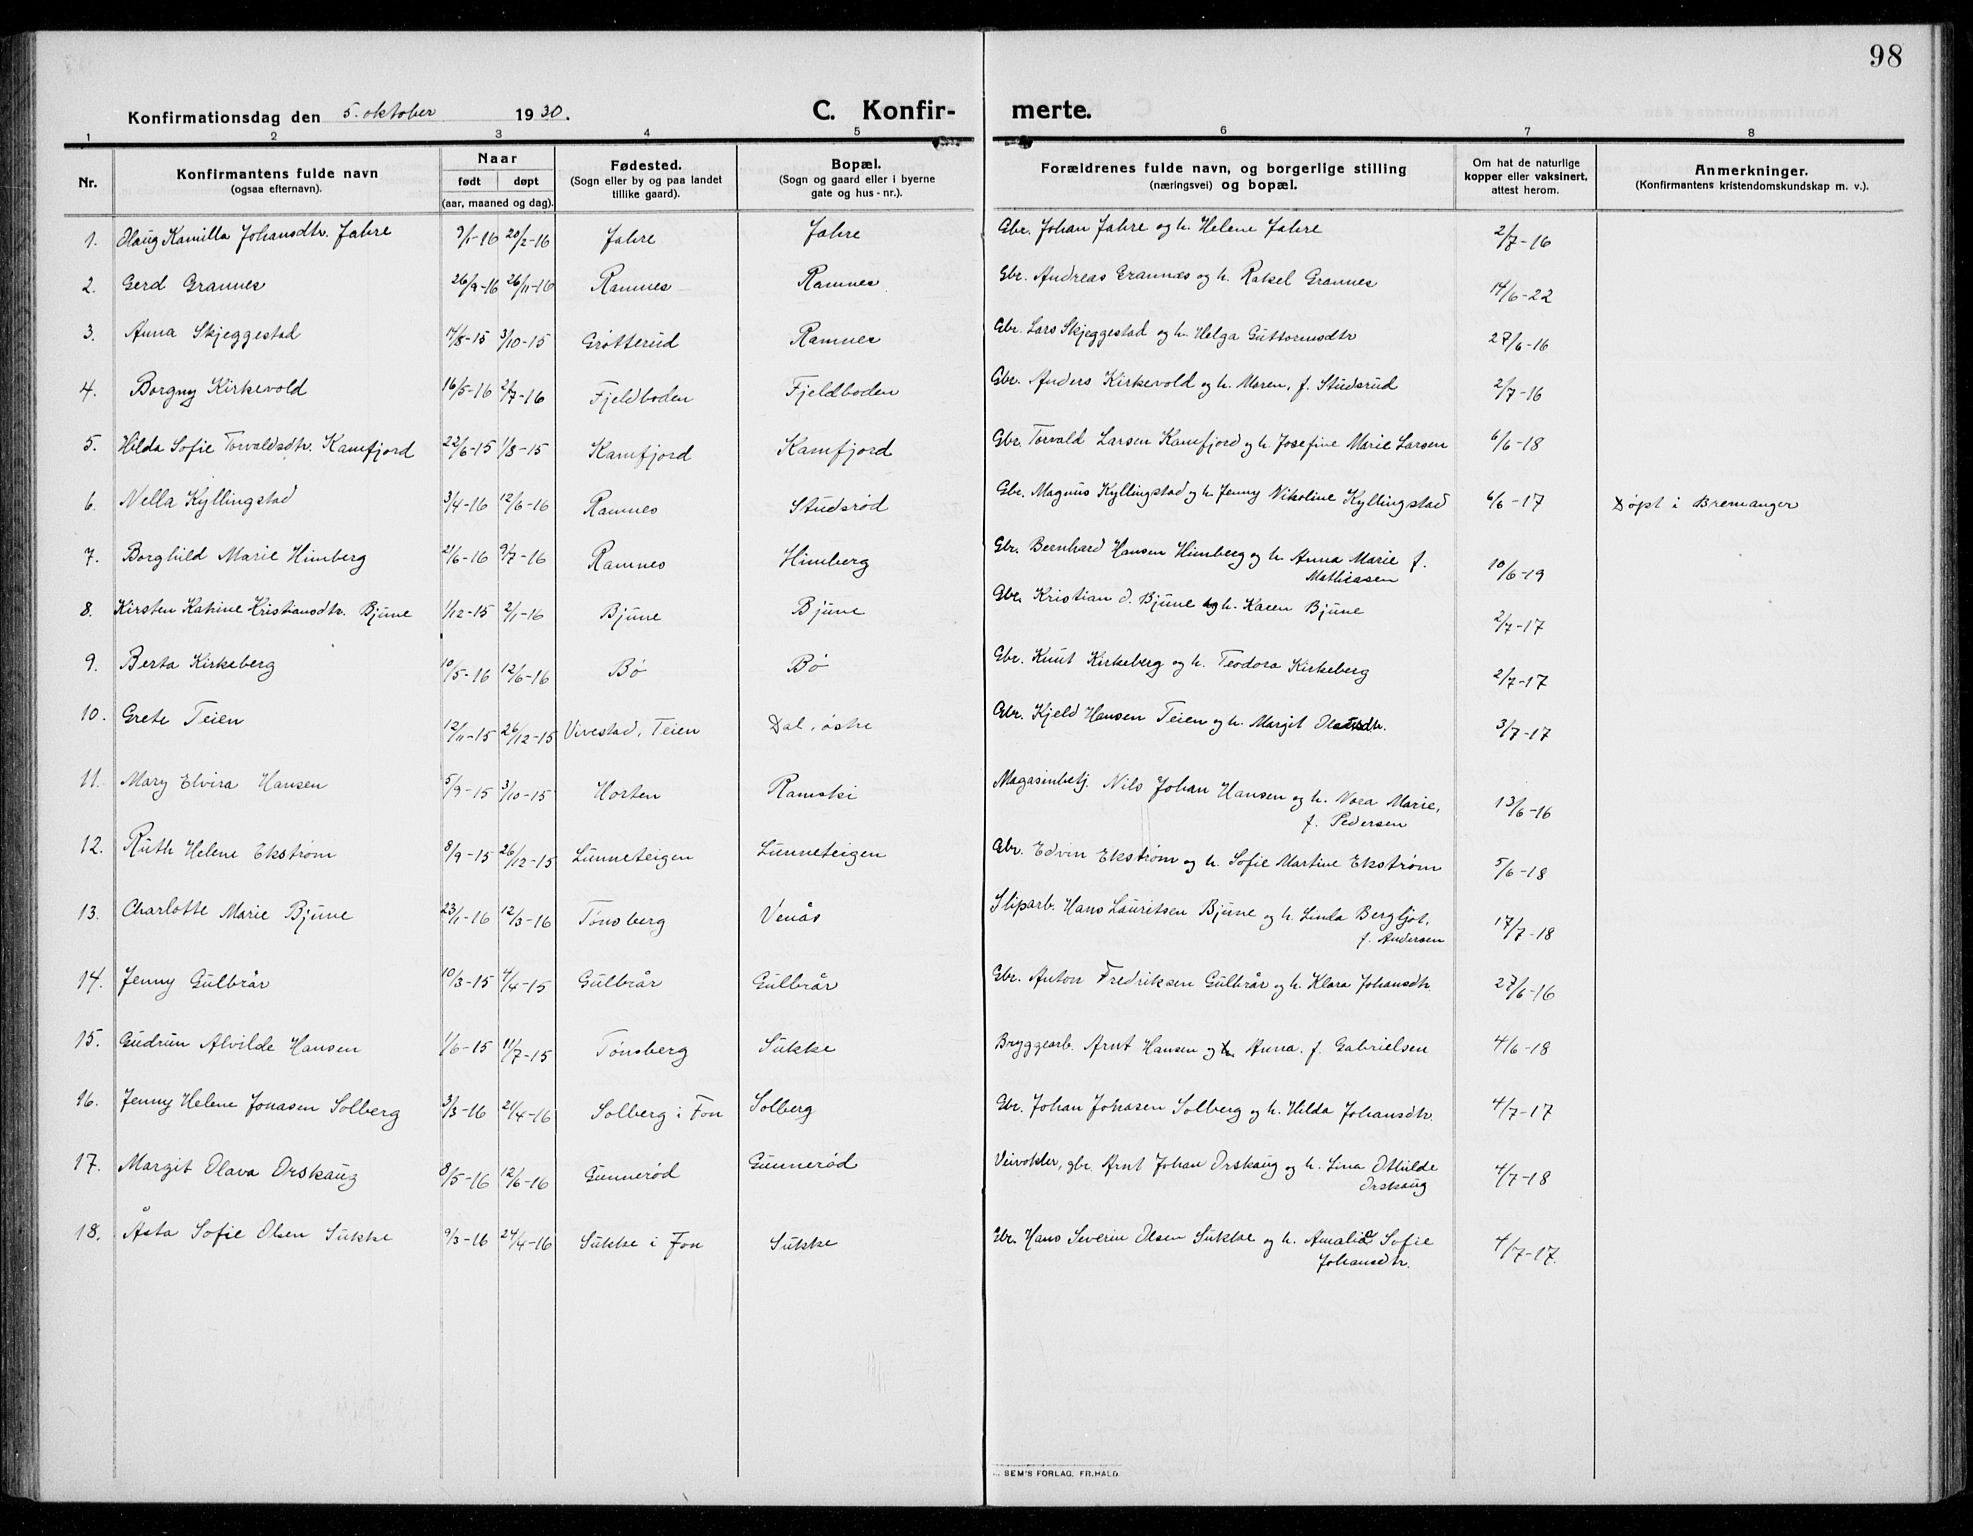 98
Konfirmationsdag den 5. oktober 1930. C. Konfir- merte.
1 2 3 4 5 6 7 8
Nr. Konfirmantens fulde navn (ogsaa efternavn). Naar født døpt (aar, maaned og dag). Fødested. (Sogn eller by og paa landet tillike gaard). Bopæl. (Sogn og gaard eller i byerne gate og hus-nr.). Forældrenes fulde navn, og borgerlige stilling (næringsvei) og bopæl. Om hat de naturlige kopper eller vaksinert, attest herom. Anmerkninger. (Konfirmantens kristendomskundskap m. v.).
1. Olaug Kamilla Johansdtr. Jahre 9/1-16 20/2-16 Jahre Jahre Gbr. Johan Jahre og h. Helene Jahre 2/7-16
2. Gerd Grannes 26/9-16 26/11-16 Ramnes Ramnes Gbr. Andreas Grannæs og h. Rakel Grannes 14/6-22
3. Anna Skjeggestad 17/8-15 3/10-15 Grøtterud Ramnes Gbr. Lars Skjeggestad og h. Helga Guttormsdtr 27/6-16
4. Borgny Kirkevold 16/5-16 2/7-16 Fjeldboden Fjeldboden Gbr. Anders Kirkevold og h. Maren, f. Studsrud 2/7-16
5. Hilda Sofie Torvaldsdtr. Kamfjord 22/6-15 1/8-15 Kamfjord Kamfjord Gbr. Torvald Larsen Kamfjord og h. Josefine Marie Larsen 6/6-18
6. Nella Kyllingstad 3/4-16 12/6-16 Ramnes Studsrød Gbr. Magnus Kyllingstad og h. Jenny Nikoline Kyllingstad 6/6-17 Døpt i Bremanger
7. Borghild Marie Himberg 2/6-16 9/7-16 Ramnes Himberg Gbr. Bernhard Hansen Himberg og h. Anna Marie f.
Mathisasen 10/6-19
8. Kirsten Katrine Kristiansdtr. Bjune 1/12-15 2/1-16 Bjune Bjune Gbr. Kristian O. Bjune og h. Karen Bjune 2/7-17
9. Berta Kirkeberg 10/5-16 12/6-16 Bø Bø Gbr. Knut Kirkeberg og h. Teodora Kirkeberg 2/7-17
10. Grete Teien 12/11-15 26/12-15 Vivestad, Teien Dal, østre Gbr. Kjeld Hansen Teien og h. Margit 3/7-17
11. Mary Elvira Hansen 5/9-15 3/10-15 Horten Ramski Magasinbetj. Nils Johan Hansen og h. Nora Marie,
f. Pedersen 13/6-16
12. Ruth Helene Ekstrøm 8/9-15 26/12-15 Lunneteigen Lunneteigen Gbr. Edvin Ekstrøm og h. Sofie Martine Ekstrøm 5/6-18
13. Charlotte Marie Bjune 23/1-16 12/3-16 Tønsberg Venås Sliparb. Hans Lauritsen Bjune og h. Linda Bergljot,
f. Andersen 17/7-18
14. Jenny Gulbrår 10/3-15 4/4-15 Gulbrår Gulbrår Gbr. Anton Fredriksen Gulbrår og h. Klara Johansdtr. 27/6-16
15. Gudrun Alvilde Hansen 1/6-15 11/7-15 Tønsberg Sukke Bryggearb. Arnt Hansen og h. Anna. f. Gabrielsen 4/6-18
16. Jenny Helene Jonasen Solberg 3/3-16 24/4-16 Solberg i Fon Solberg Gbr. Johan Jonasen Solberg og h. Hilda Johansdtr. 4/7-17
17. Margit Olava Orskaug 8/5-16 12/6-16 Gunnerød Gunnerød Veivokter, gbr. Arnt Johan Orskaug og h. Lina Othilde
Orskaug 4/7-18
18. Åsta Sofie Olsen Sukke 9/3-16 24/4-16 Sukke i Fon Sukke Gbr. Hans Severin Olsen Sukke og h. Amalie Sofie
Johansdtr. 4/7-17.
SEM'S FORLAG, FR.HALD.